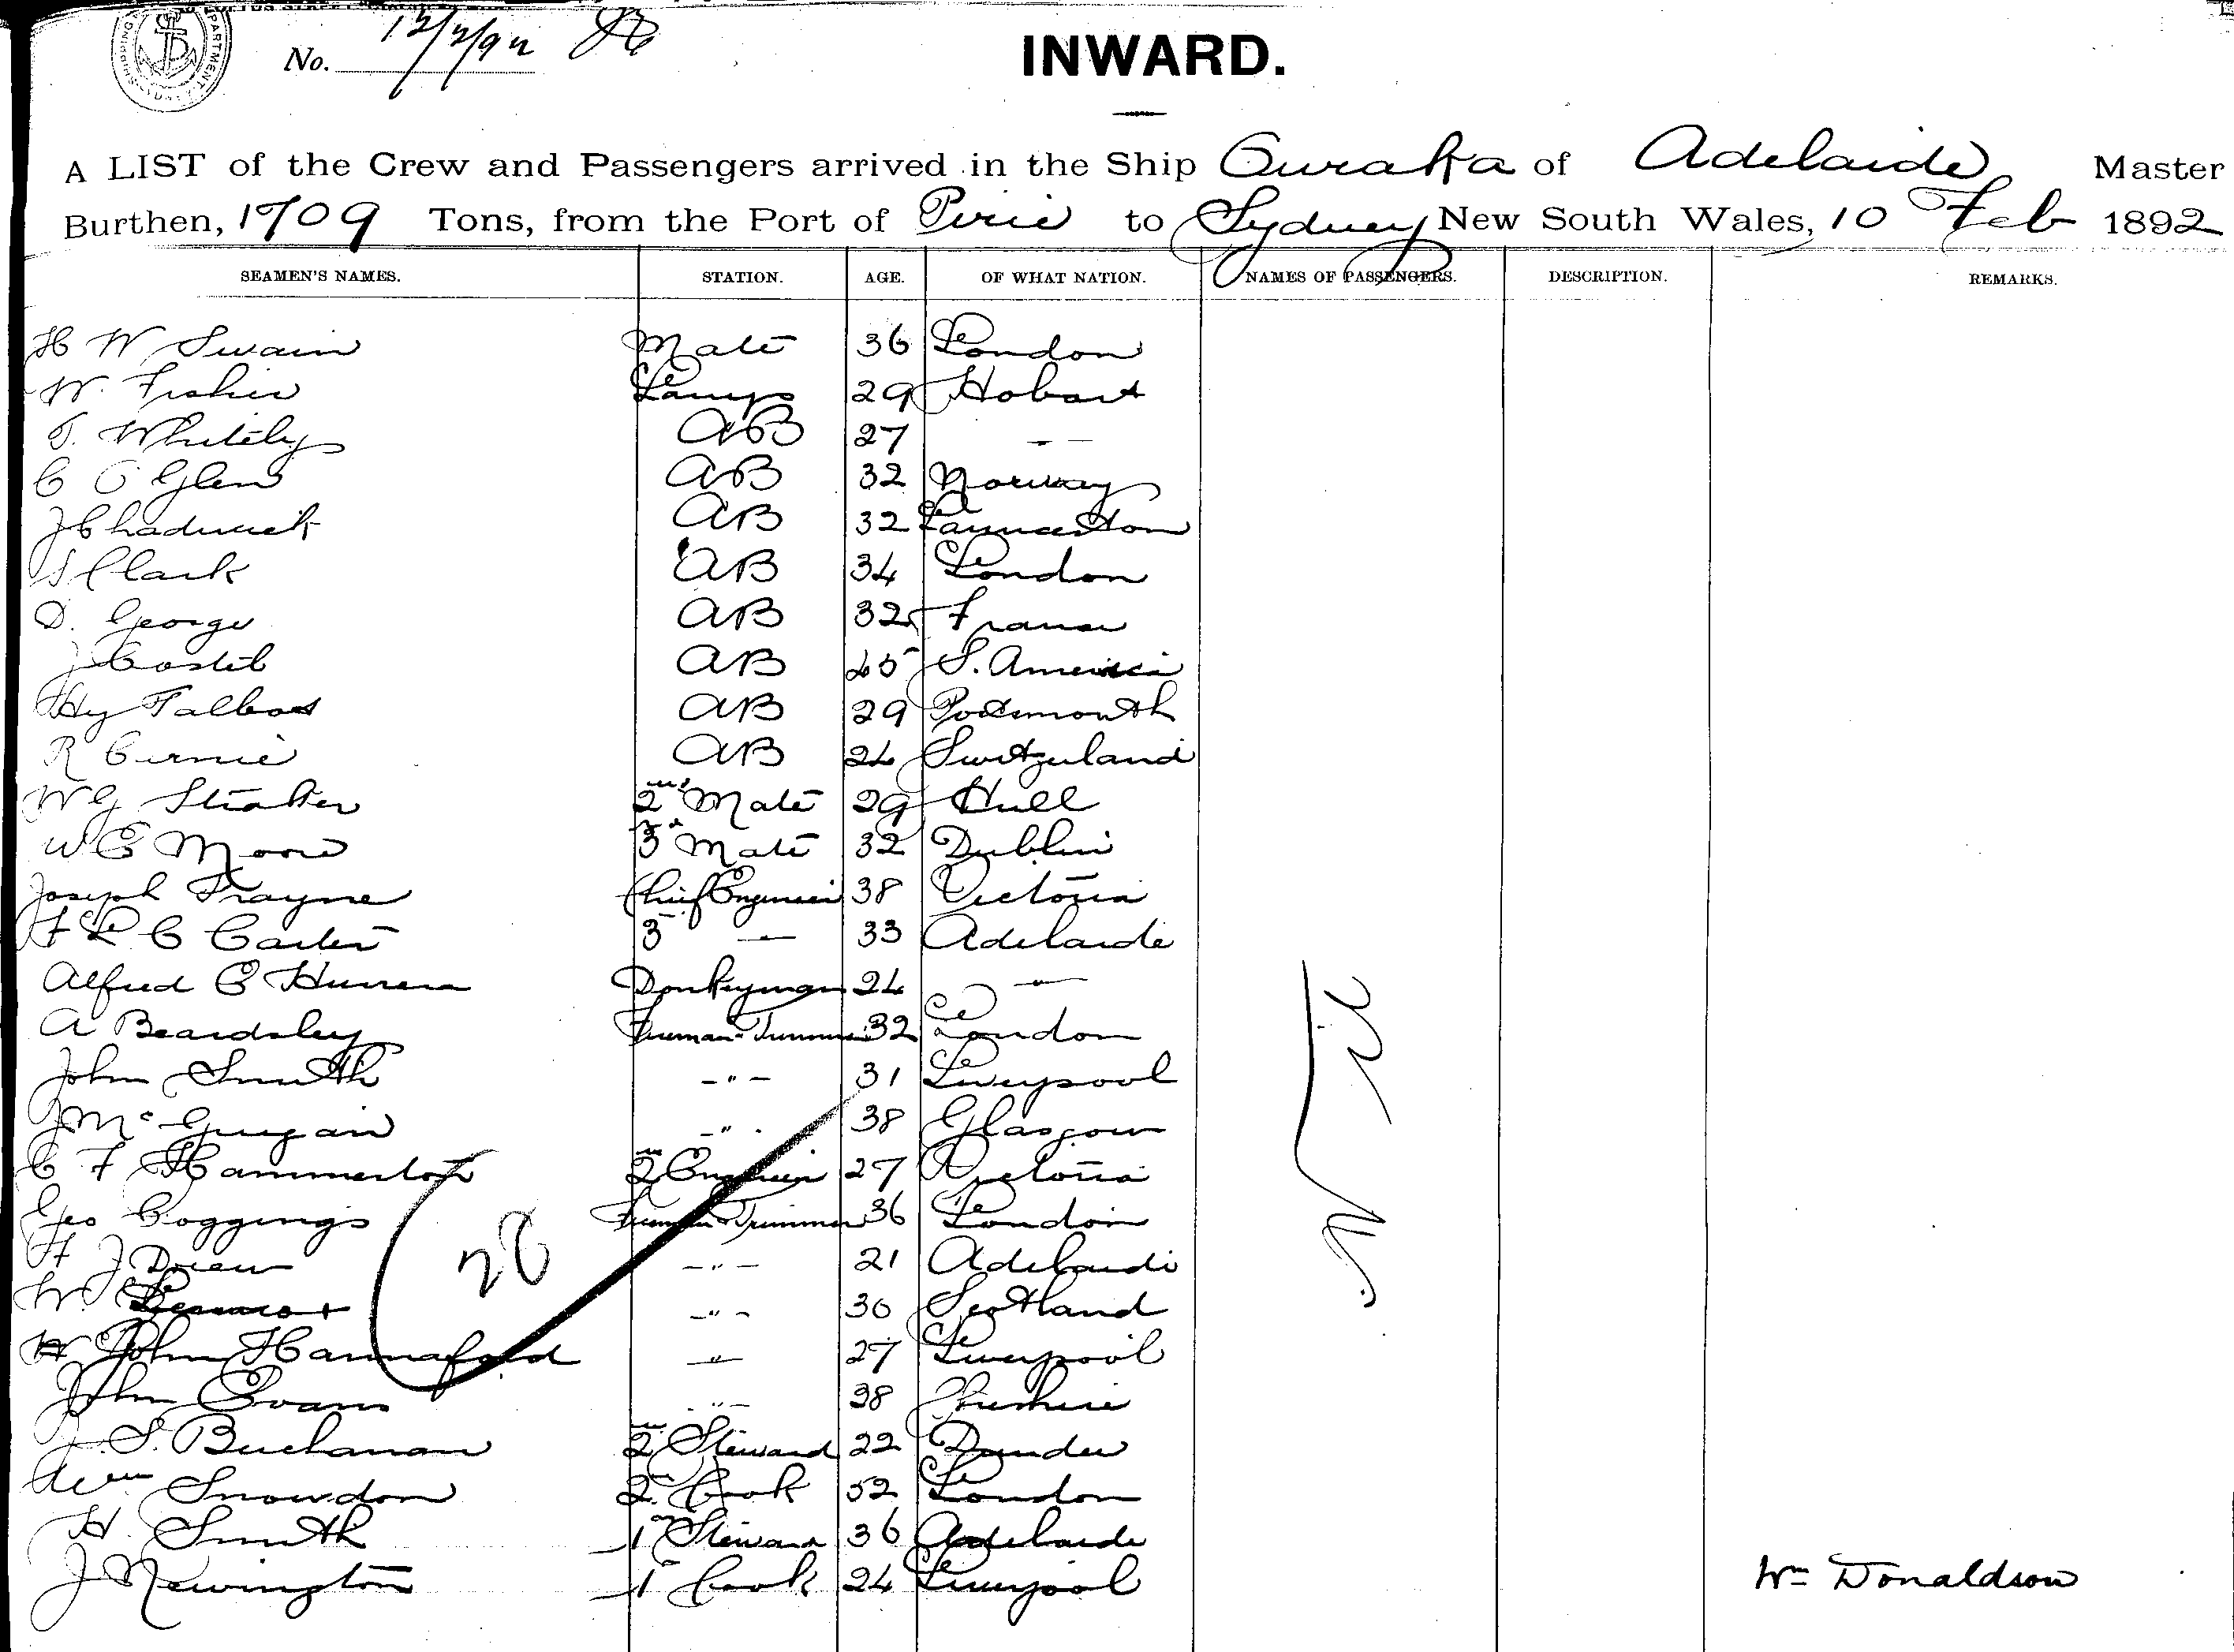 No. 12/2/92
INWARD.
A LIST of the Crew and Passengers arrived in the Ship Ouraka of Adelaide Master
Burthen, 1709 Tons, from the Port of Pirie to Sydney New South Wales, 10 Feb 1892
SEAMEN'S NAMES. STATION. AGE. OF WHAT NATION. NAMES OF PASSENGERS. DESCRIPTION. REMARKS.
H W Swain Mate 36 London
W. Fisher Lamps 29 Hobart
T. Whitely AB 27 - -
C O Glen AB 32 Norway
J Chadwick AB 32 Launceston
S Clark AB 34 London
D. George AB 32 France
J AB S. America
Hy Talbot AB 29 Portsmouth
R AB 24 Switzerland
W G Straker 2nd Mate 29 Hull
W E Moore 3d Mate 32 Dublin
Joseph Trayne Chief Engineer 38 Victoria
F L C Carter 3 — 33 Adelaide
Alfred C Donkeyman 24 - " -
A Beardsley Fireman Trimmer 32 London
John Smith - " - 31 Liverpool
J McGuigan - " - 38 Glasgow
C F Hammerton 2nd Engineer 27 Victoria
Geo Goggings Fireman Trimmer 36 London
H J Drew - " - 21 Adelaide
28
W. - " - 30 Scotland
John Hannaford " 27 Liverpool
John Evans - " - 38 Cheshire
J. S. Buchanan 2nd Steward 22 Dundee
Wm Snowdon 2nd Cook 52 London
H. Smith 1st Steward 36 Adelaide
J Newington 1st Cook 24 Liverpool
Nil
Wm Donaldson